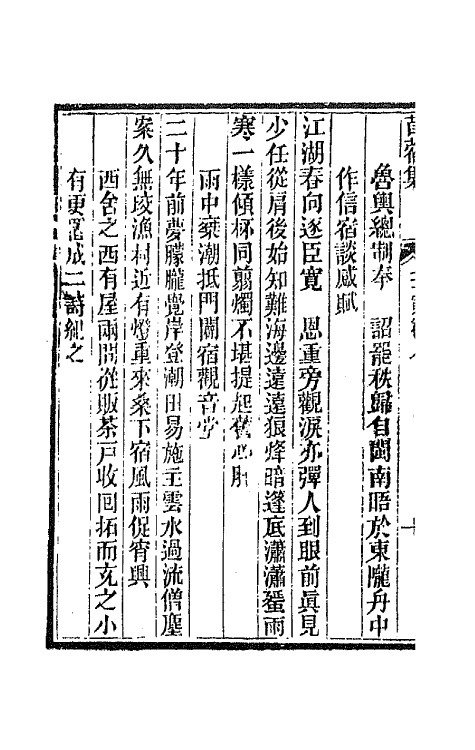 魯輿總制奉　詔罷秩歸自閩南晤於東隴舟中
作信宿談感賦
江湖春向逐臣寬　恩重旁觀淚亦彈人到眼前眞見
少任從肩後始知難海邊遠遠狼烽暗篷底瀟瀟蜑雨
寒一樣傾杯同翦燭不堪提起舊心肝
雨中乘潮抵門闢宿觀音堂
二十年前夢朦朧覺岸登潮田易施主雲水過流僧塵
案久無歧漁村近有燈重來桑下宿風雨促宵興
西舍之西有屋兩間從販茶戸收回拓而充之小
有更罷成二詩紀之